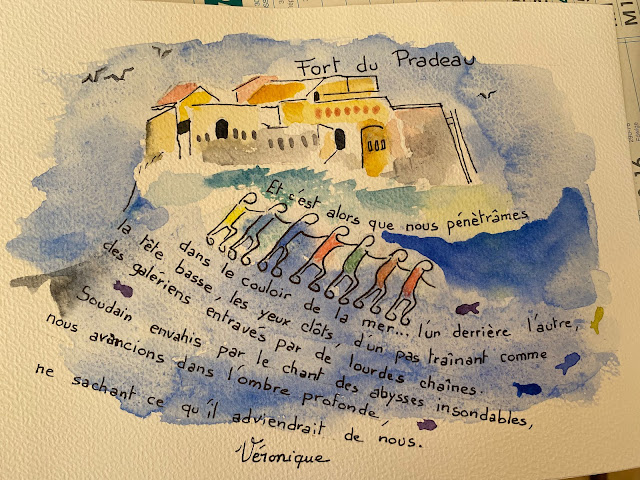 Fort du Pradeau
Et c'est alors que nous pénètrâmes
dans le couloir de la mer... l'un derrière l'autre,
la tête basse, les yeux clôts, d'un pas traînant comme
des galériens entravés par de lourdes chaînes.
Soudain envahis par le chant des abysses insondables,
nous avancions dans l'ombre profonde,
ne sachant ce qu'il adviendrait de nous.
Véronique